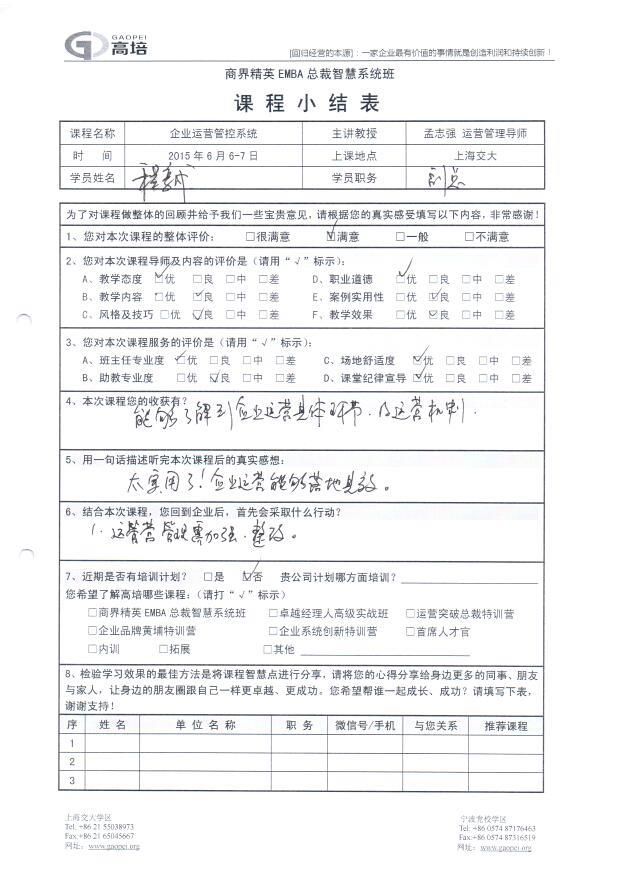 GAOPEI
高培
[回归经营的本源]：一家企业最有价值的事情就是创造利润和持续创新！
商界精英 EMBA 总裁智慧系统班
课 程 小 结 表
课程名称 企业运营管控系统 主讲教授 孟志强 运营管理导师
时 间 2015 年 6 月 6-7 日 上课地点 上海交大
学员姓名 程 学员职务 副总
为了对课程做整体的回顾并给予我们一些宝贵意见，请根据您的真实感受填写以下内容，非常感谢！
1、您对本次课程的整体评价： □很满意 ☑满意 □一般 □不满意
2、您对本次课程导师及内容的评价是（请用“√”标示）：
A、教学态度 ☑优 □良 □中 □差 D、职业道德 ☑优 □良 □中 □差
B、教学内容 □优 ☑良 □中 □差 E、案例实用性 □优 ☑良 □中 □差
C、风格及技巧 □优 ☑良 □中 □差 F、教学效果 □优 ☑良 □中 □差
3、您对本次课程服务的评价是（请用“√”标示）：
A、班主任专业度 ☑优 □良 □中 □差 C、场地舒适度 ☑优 □良 □中 □差
B、助教专业度 □优 ☑良 □中 □差 D、课堂纪律宣导 ☑优 □良 □中 □差
4、本次课程您的收获有？
能够了解到企业运营具体环节．及运营机制．
5、用一句话描述听完本次课程后的真实感想：
太实用了！企业运营能够落地见效。
6、结合本次课程，您回到企业后，首先会采取什么行动？
1. 运营管理需加强．整改。
7、近期是否有培训计划？ □是 ☑否 贵公司计划哪方面培训？
您希望了解高培哪些课程：（请打“√”标示）
□商界精英 EMBA 总裁智慧系统班 □卓越经理人高级实战班 □运营突破总裁特训营
□企业品牌黄埔特训营 □企业系统创新特训营 □首席人才官
□内训 □拓展 □其他
8、检验学习效果的最佳方法是将课程智慧点进行分享，请将您的心得分享给身边更多的同事、朋友
与家人，让身边的朋友圈跟自己一样更卓越、更成功。您希望帮谁一起成长、成功？请填写下表，
谢谢支持！
序 姓 名 单 位 名 称 职 务 微信号/手机 与您关系 推荐课程
1
2
3
上海交大学区 宁波党校学区
Tel: +86 21 55038973 Tel: +86 0574 87176463
Fax:+86 21 65045667 Fax:+86 0574 87316519
网址：www.gaopei.org 网址：www.gaopei.org